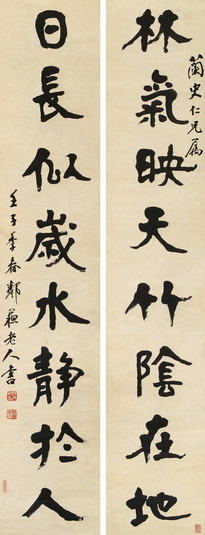 林氣映天竹陰在地
蘭史仁兄屬
日長似歲水靜於人
壬子季春鄰蘇老人書